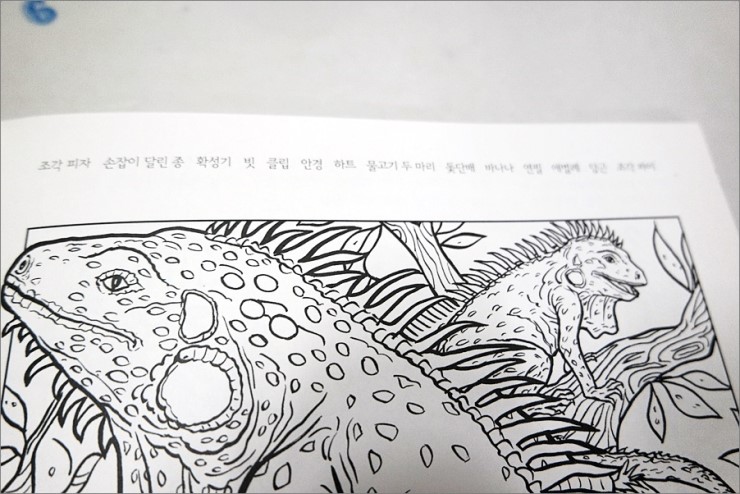 6
조각 피자 손잡이 달린 종 확성기 빗 클립 안경 하트 물고기 두 마리 돛단배 바나나 연필 애벌레 당근 조각 파이